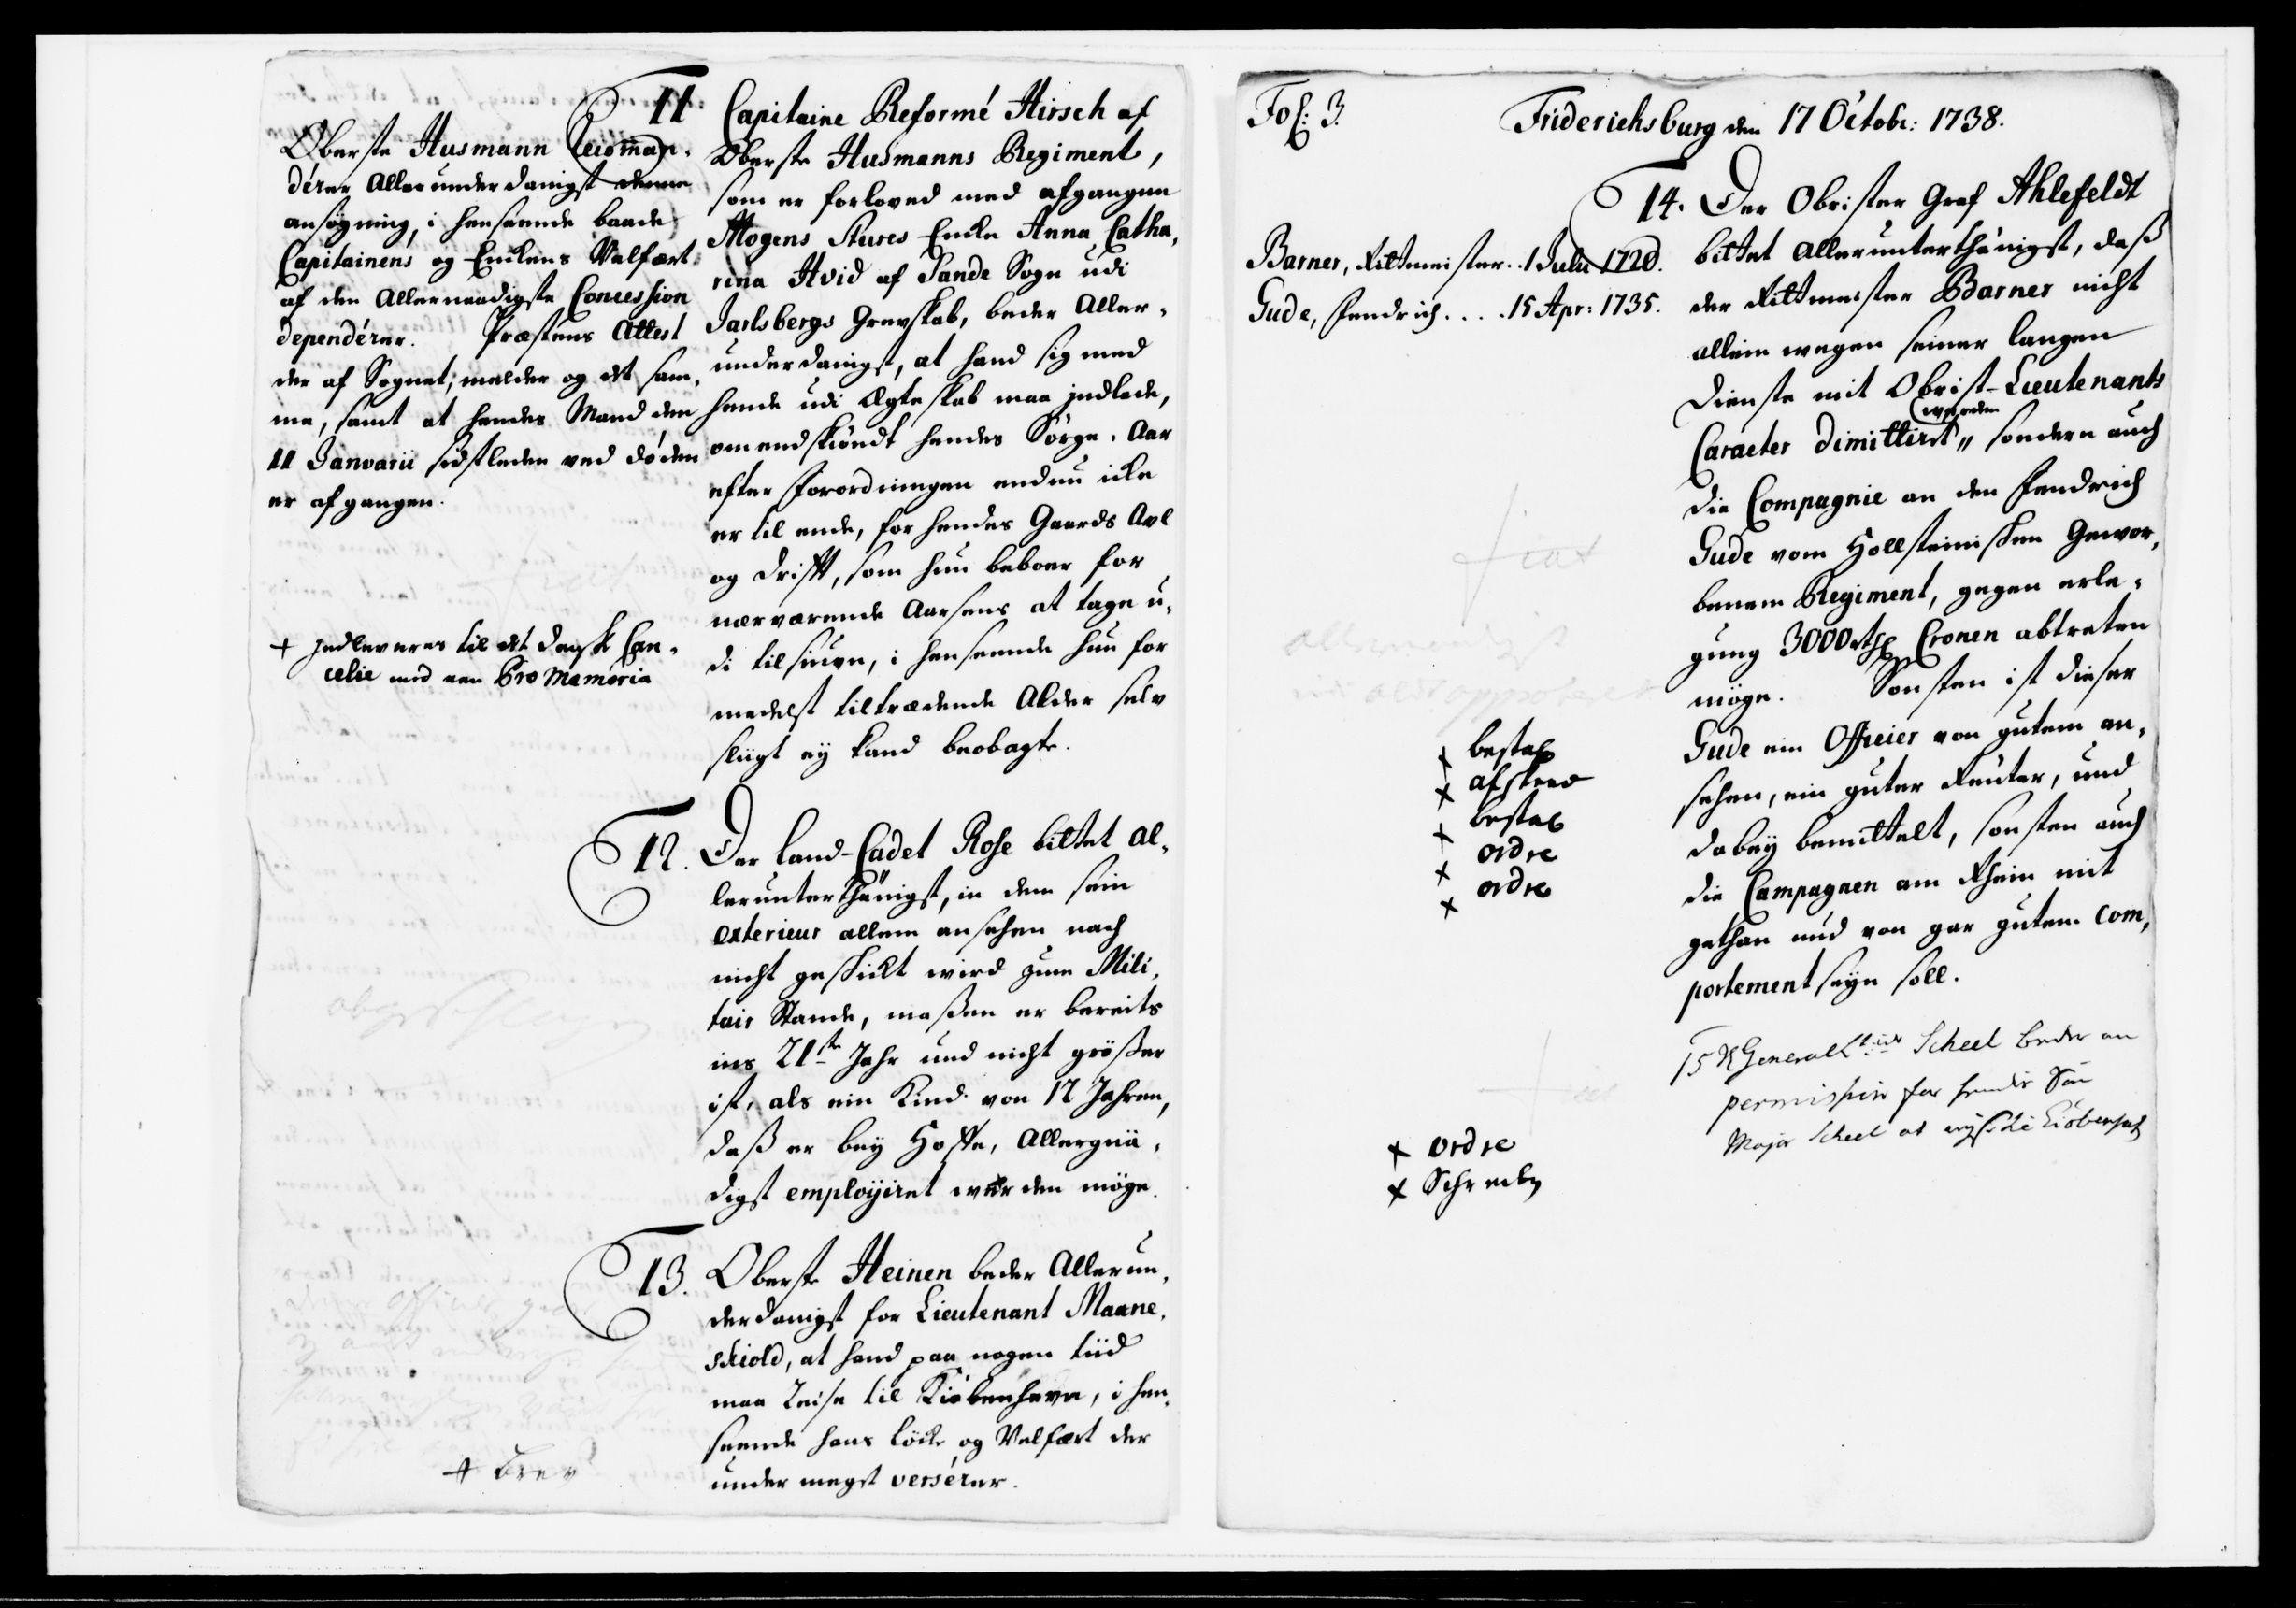 11
Oberste Husmann recomman-
dérer Allerunderdanigst denne
ansögning, i henseende baade
Capitainens og Enckens Velfært
af den Allernaadigste Concession
dependérer. Præstens Attest
der af Sognet, melder og det sam-
me, samt at hendes Mand den
11 Januarii sidstleden ved döden
er afgangen.
+ Indleveres til det danske Can-
celie med een Pro Memoria
Capitaine Reformé Hirsch af
Oberste Husmanns Regiment,
som er forloved med afgangen
Mogens Stures Encke Anna Catha-
rina Hvid af Sande Sogn udi
Jarlsbergs Grevskab, beder Aller-
underdanigst, at hand sig med
hende udi Ægteskab maa indlade,
omendskiöndt hendes Sörge-Aar
efter Forordningen endnu icke
er til ende, for hendes Gaards Avl
og drifft, som hun beboer for
nærværende Aarsens at tage u-
di tilsiuvn, i henseende hun for
medelst tiltrædende Alder selv
sligt ey kand beobagte.
12. Der Land-Cadet Rose bittet al-
lerunterthänigst, in dem sein
exterieur allem ansehen nach
nicht geschickt wird zum Mili-
tair Stande, maßen er bereits
ins 21ste Jahr und nicht größer
ist, als ein Kind von 12 Jahren,
daß er bey Hoffe, Allergnä-
digst employiret werden möge.
abgeschlagen
13. Oberste Heinen beder Allerun-
derdanigst for Lieutenant Maane-
skiold, at hand paa nogen tiid
maa Reise til Kiöbenhavn, i hen-
seende hans löcke og Velfært der
under megst versérer.
+ brev
Fol: 3.
Friderichsburg den 17 Octobr: 1738.
Barner, Rittmeister. 1 Julii 1720.
Gude, Fendrich. . . . 15 Apr: 1735.
14. Der Obrister Graf Ahlefeldt
bittet Allerunterthänigst, daß
der Rittmeister Barner nicht
allein wegen seiner langen
Dienste mit Obrist-Lieutenants
werden
Caracter dimittirt,, sondern auch
die Compagnie an den Fendrich
Gude vom Hollsteinischen Gewor-
benem Regiment, gegen erle-
gung 3000 rthl Cronen abtreten
möge. Sonsten ist dieser
Gude ein Officier von gutem an-
sehen, ein guter Reuter, und
dabey bemittelt, sonsten auch
die Campagnen am Rhein mit
gethan und von gar gutem com-
portement seyn soll.
fiat
+ bestal
+ afskeed
+ bestal
+ ordre
+ ordre
15 Scheel beder om
permission for hendes Sön
Major Scheel at
fiat
+ ordre
+ Schreiben